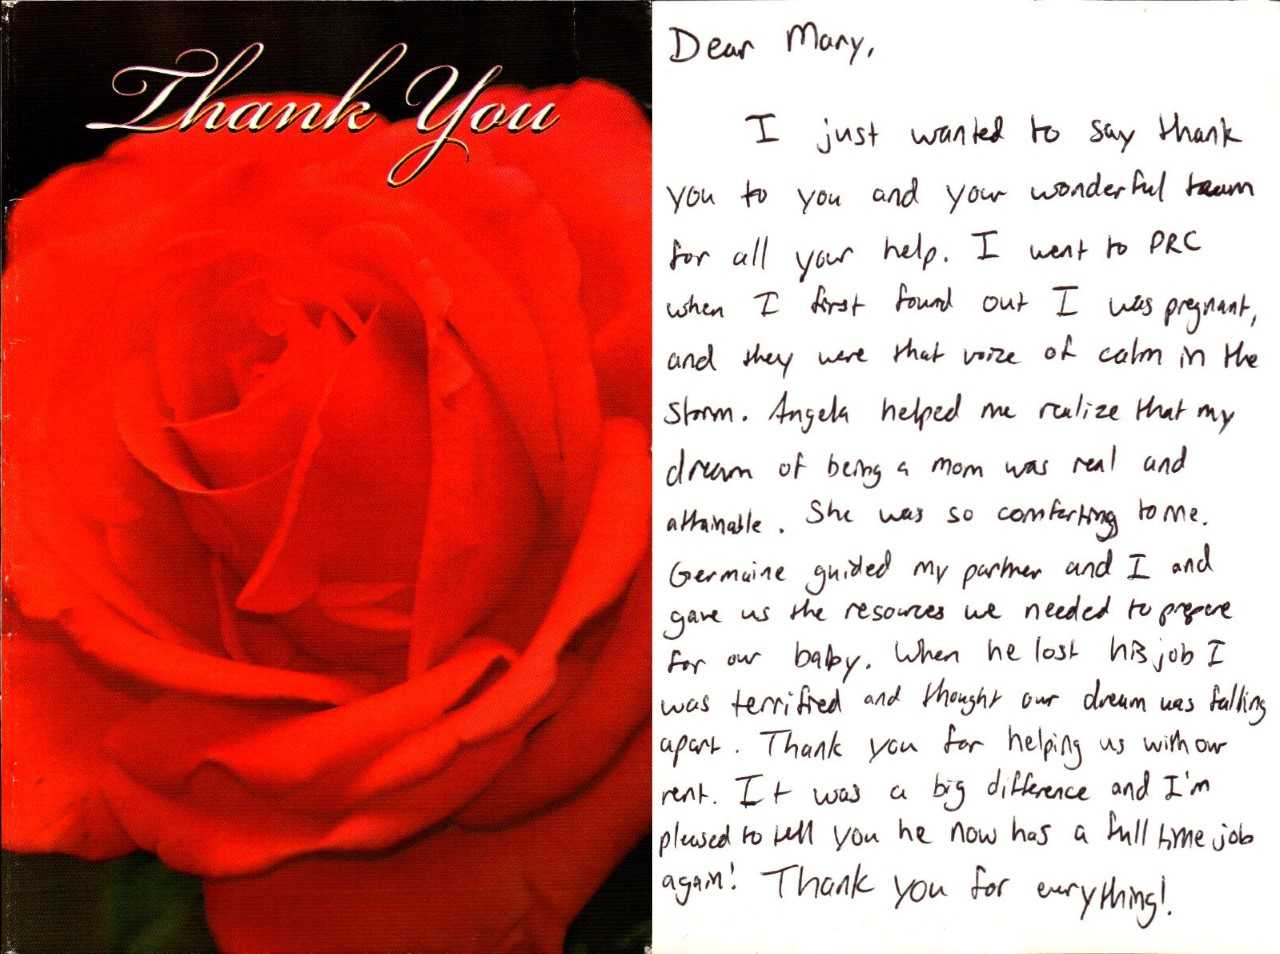 Thank You
Dear Mary,
I just wanted to say thank
you to you and your wonderful team
for all your help. I went to PRC
when I first found out I was pregnant,
and they were that voize of calm in the
storm. Angela helped me realize that my
dream of being a mom was real and
attainable. She was so comforting to me.
Germaine guided my partner and I and
gave us the resources we needed to prepare
for our baby. When he lost his job I
was terrified and thought our dream was falling
apart. Thank you for helping us with our
rent. It was a big difference and I'm
pleased to tell you he now has a full time job
again! Thank you for everything!